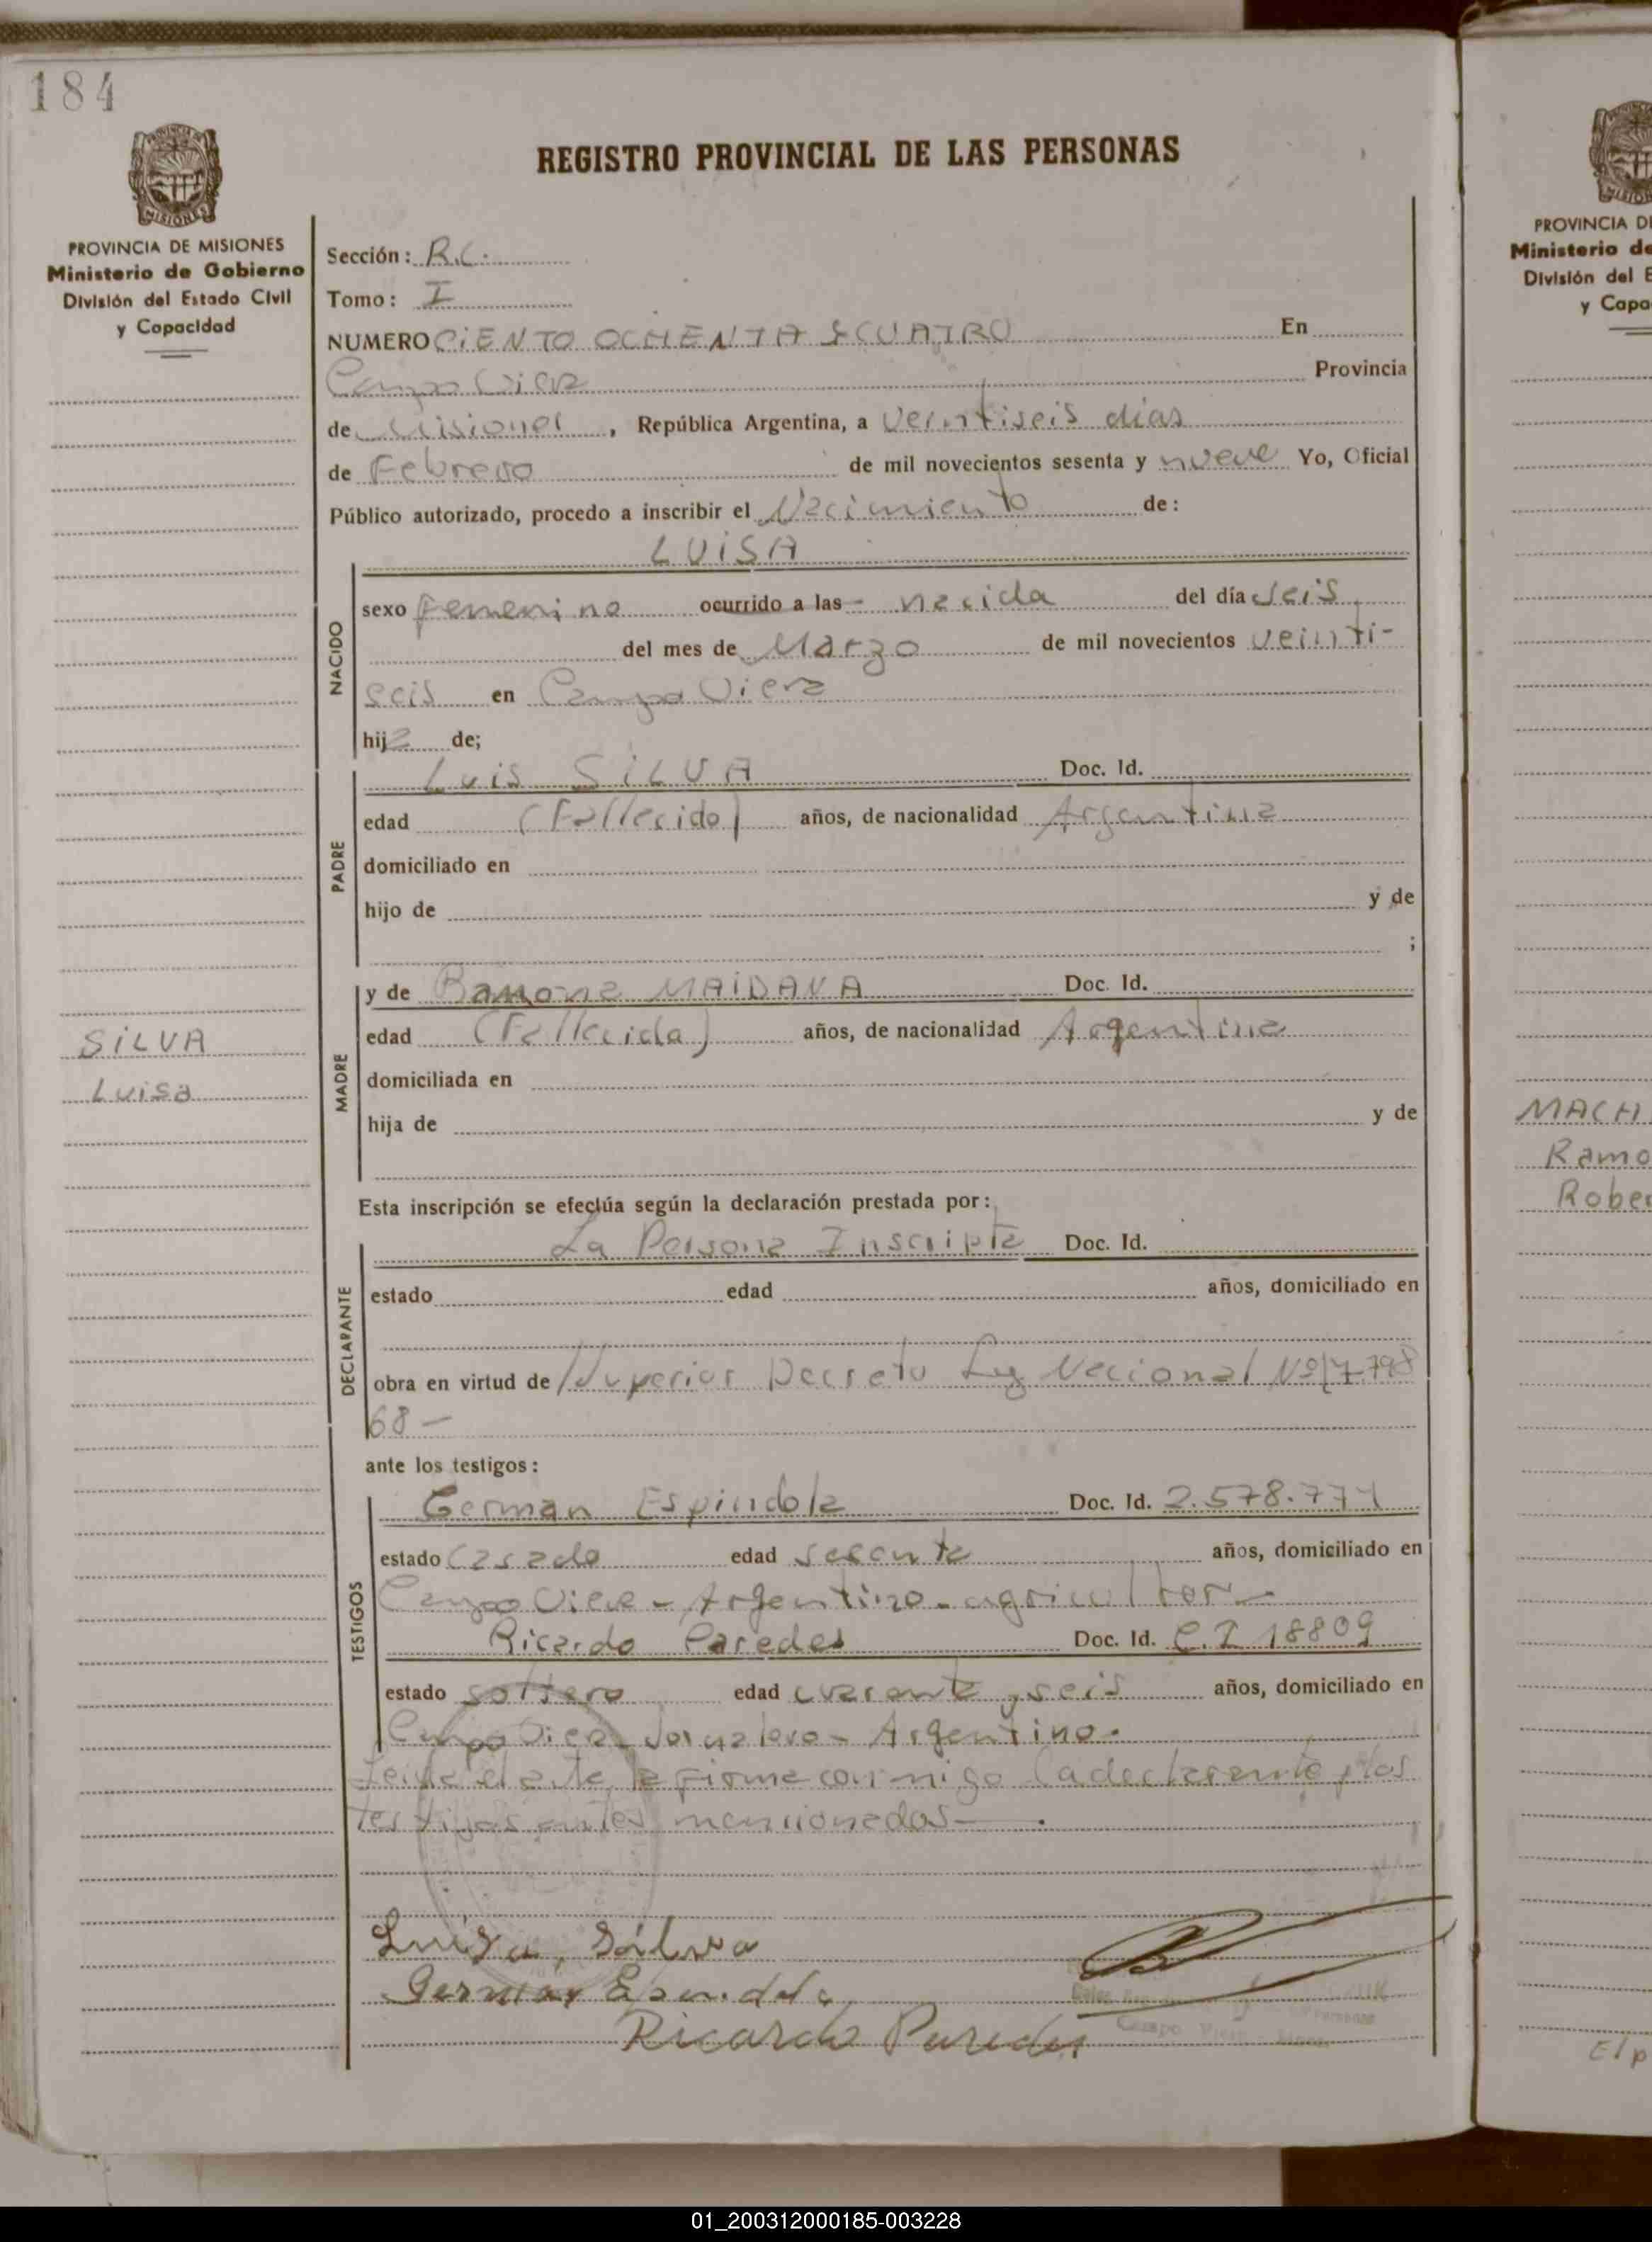 184
REGISTRO PROVINCIAL DE LAS PERSONAS
PROVINCIA DE MISIONES
Ministerio de Gobierno
División del Estado Civil
y Capacidad
Sección: R.C.
Tomo: I
NUMERO CiENTO OCHENTA & CUATRO En
Campo Viera Provincia
de Misiones, República Argentina, a veintiseis dias
de Febrero de mil novecientos sesenta y nueve Yo, Oficial
Público autorizado, procedo a inscribir el Nacimiento de:
LUiSA
NACIDO
sexo femenino ocurrido a las - nacida del día seis
del mes de Marzo de mil novecientos veinti-
seis en Campo Viera
hija de;
PADRE
Luis SiLVA Doc. Id.
edad (Fallecido) años, de nacionalidad Argentina
domiciliado en
hijo de y de
;
MADRE
y de Ramona MAiDANA Doc. Id.
edad (Fallecida) años, de nacionalidad Argentina
domiciliada en
hija de y de
SiLVA
Luisa
Esta inscripción se efectúa según la declaración prestada por:
DECLARANTE
La Persona Inscripta Doc. Id.
estado edad años, domiciliado en
obra en virtud de Superior Decreto Ley Nacional Nº 17.798
68-
ante los testigos:
TESTIGOS
German Espindola Doc. Id. 2.578.771
estado Casado edad sesenta años, domiciliado en
Campo Viera - Argentino - agricultor -
Ricardo Paredes Doc. Id. C.I 18809
estado soltero edad cuarenta y seis años, domiciliado en
Campo Viera - Jornalero - Argentino.
Leida el acta, la firma conmigo la declarante y los
testigos antes mencionados - .
Luisa, Silva
German Espindola
Ricardo Paredes
Campo Viera
PROVINCIA D
Ministerio de
División del E
y Capa
MACH
Ramo
Rober
El p
01_200312000185-003228